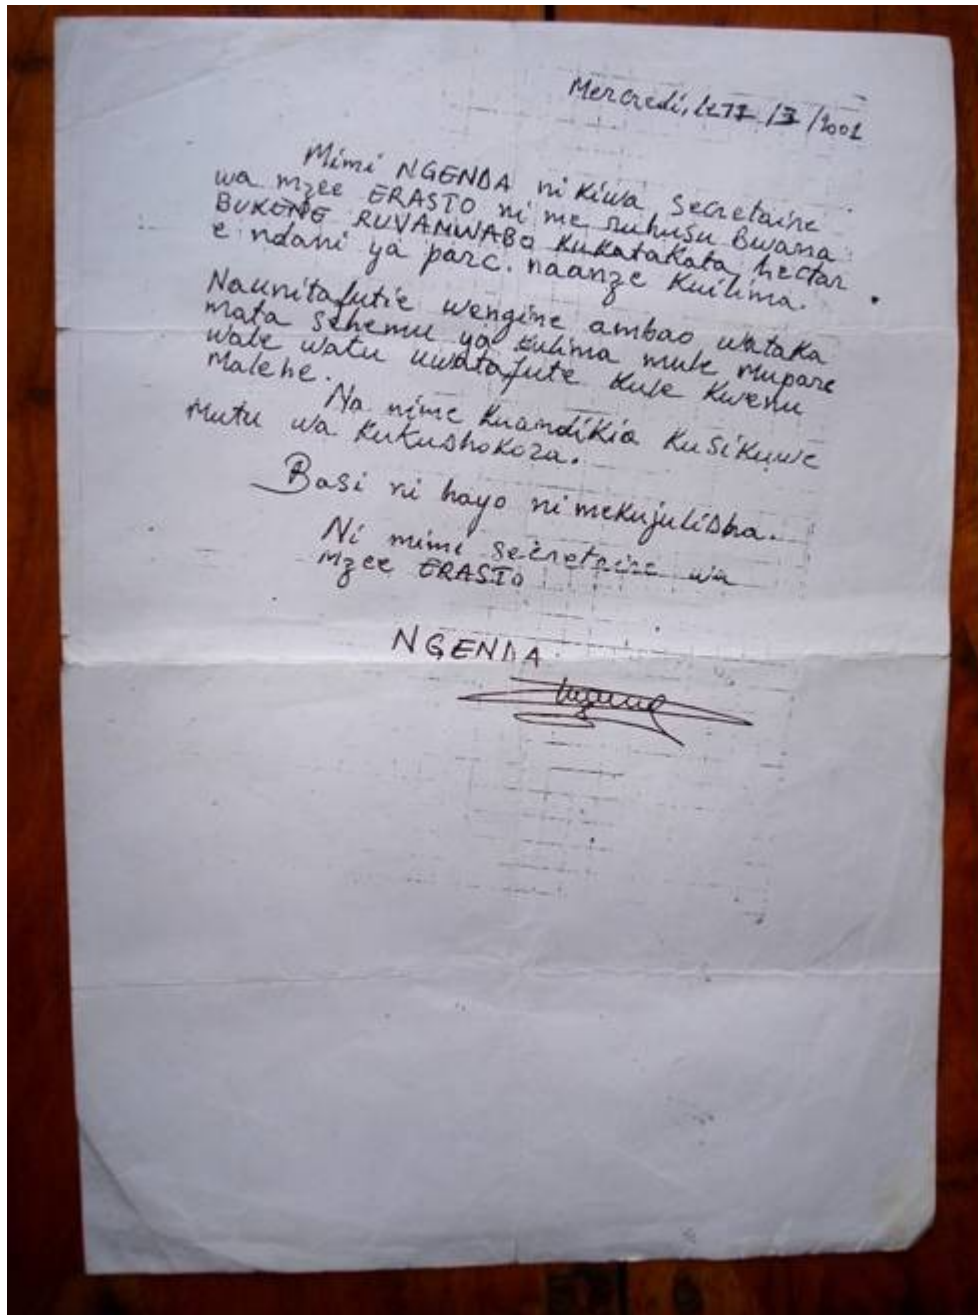 Mercredi, le /3/2001
Mimi NGENDA ni Kiwa secretaire
wa mzee ERASTO ni me ruhusu Bwana
BUKENE RUVAMWABO Kukatakata hectar
e ndani ya parc. naanze Kuilima.
Naunitafutie wengine ambao wataka
mata sehemu ya kulima mule Muparc
wale watu uwatafute Kule Kwenu
Malehe.
Na nime Kuandikia Kusikuwe
Mutu wa Kukushokoza.
Basi ni hayo ni mekujulisha.
Ni mimi secretaire wa
Mzee ERASTO
NGENDA